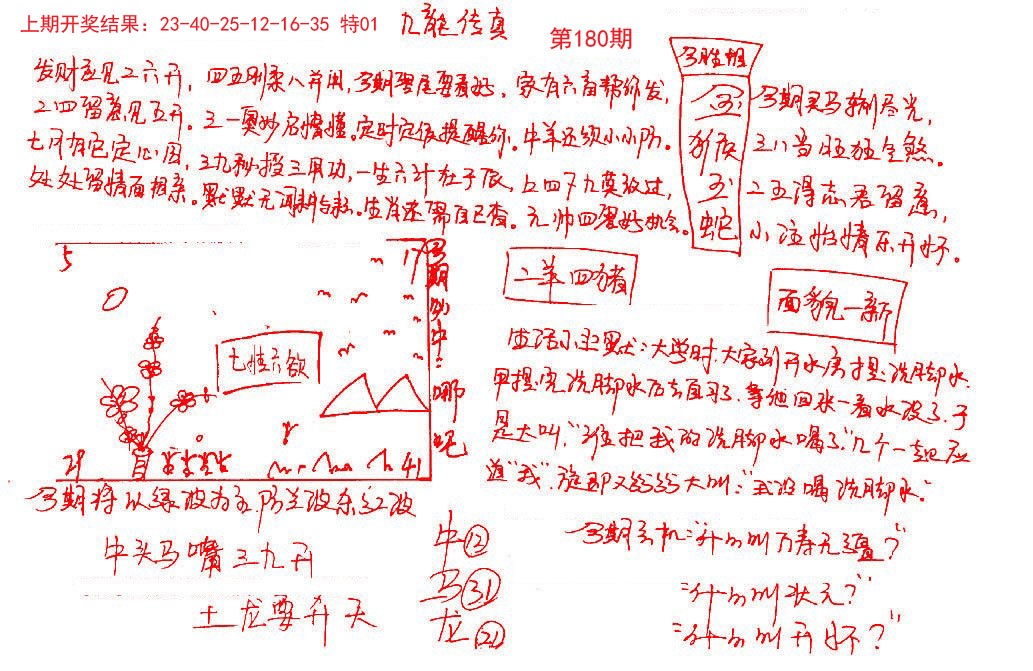 上期开奖结果：23-40-25-12-16-35 特01
九龙传真
第180期
发财应见二六开，四五刚柔八并用，今期琴尾要看好。家有六畜帮你发，
二四留意见五开。三一奥妙启情怀。定时定位提醒你。牛羊还须小心防。
七只有它定心用，三九秒投三用功，一生六计在于
处处留情面相亲。默默无闻耕耘。生肖还需自己查。元帅四
今期
金
猴
玉
蛇
今期买马输尽光，
三八当旺独生煞。
二五得志君留意，
小注怡情乐开怀。
二羊四猪
面貌一新
5
17
七情六欲
29
41
今期外中：哪呢
生活小幽默：大学时，大家到开水房提洗脚水，
早提完洗脚水后去自习了，等他回来一看水没了，于
是大叫，"谁把我的洗脚水喝了"几个一起应
道"我"，随即又纷纷大叫："我没喝洗脚水。"
今期将以绿波为主，防兰波杀红波
牛头马嘴三九开
土龙要升天
牛⑫
马㉛
龙㉑
今期玄机："什么叫万寿无疆？"
"什么叫状元？"
"什么叫开怀？"